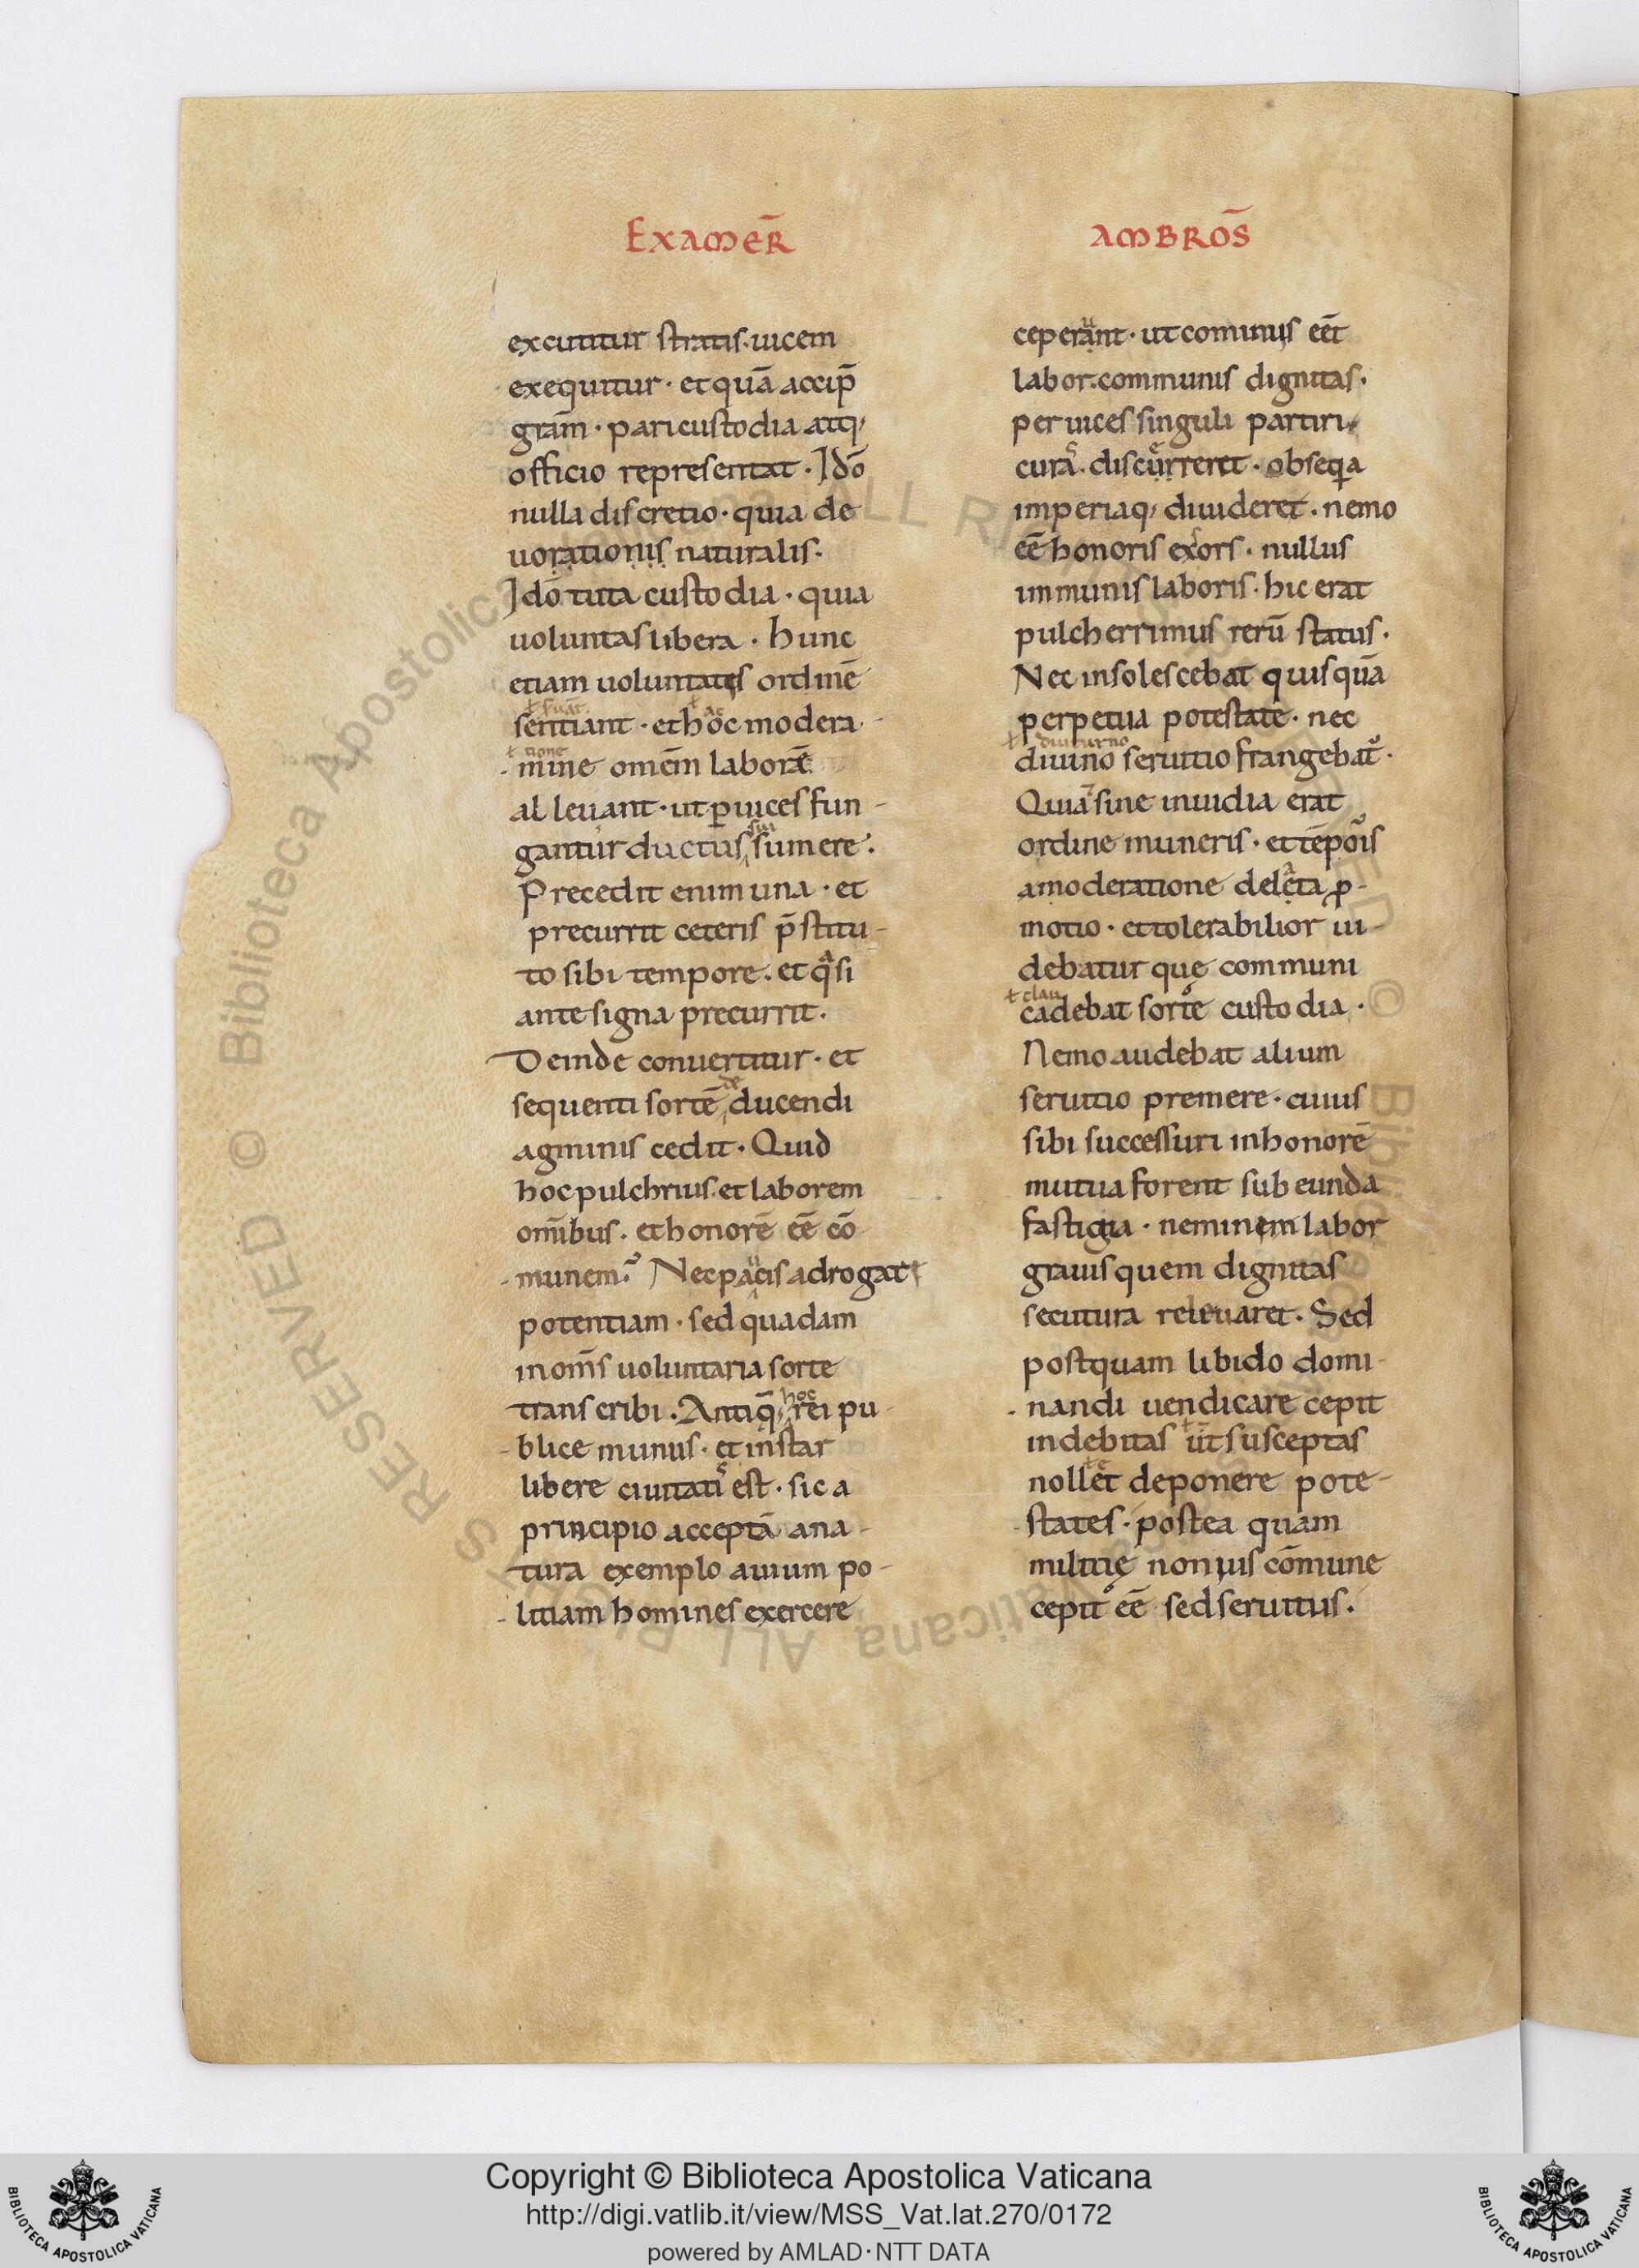 Examer̄
excutitur stratis·uicem
exequitur· et quā accip̄
grām· pari custodia atq;
officio representat· Idō
nulla discretio· quia de
uorationis naturalis·
Idō tuta custodia· quia
uoluntas libera· hunc
etiam uoluntates ordinē
ł fuāt· ł ac
sentiant· et hoc modera
ł tione
mine omēm laborē
alleuant· ut ꝑ uices fun-
sui
gantur ductus sumere·
Precedit enim una· et
precurrit ceteris p̄stitu-
to sibi tempore· et qͣsi
ante signa precurrit·
Deinde conuertitur· et
de
sequenti sortē ducendi
agminis cedit· Quid
hoc pulchrius· et laborem
om̄ibus· et honorē eē cō
munem? Nec paucis adrogat
potentiam· sed quadam
in om̄s uoluntaria sorte
hoc
transcribi· Antiq̄ rei pu-
-blice munus· et instar
libere ciuitati est· sic a
principio acceptā a na-
tura exemplo auium po-
-litiam homines exercere
Ambros̄
u
ceperant· ut cominus eēt
labor·communis dignitas·
per uices singuli partiri
curā· discurreret· obseqͥa
imperiaq; diuideret· nemo
eē honoris exors· nullus
immunis laboris· hic erat
pulcherrimus rerū status·
Nec insolescebat quisquā
perpetua potestate· nec
ł diuturno
diuino seruitio frangebat᷒·
Quia sine inuidia erat
ordine muneris· et tēpois
a moderatione deleta ꝓ-
motio· et tolerabilior ui-
debatur quę communi
ł clau
cadebat sorte custodia·
Nemo audebat alium
seruitio premere· cuius
sibi successuri in honorē
mutua forent subeunda
fastigia· neminem labor
grauis quem dignitas
secutura releuaret· Sed
postquam libido domi-
nandi uendicare cepit
indebitas ut susceptas
nollet deponere pote-
-states· postea quam
militię non ius cōmune
cepit eē sed seruitus·
Copyright © Biblioteca Apostolica Vaticana
http://digi.vatlib.it/view/MSS_Vat.lat.270/0172
powered by AMLAD·NTT DATA
BIBLIOTECA APOSTOLICA VATICANA
BIBLIOTECA APOSTOLICA VATICANA